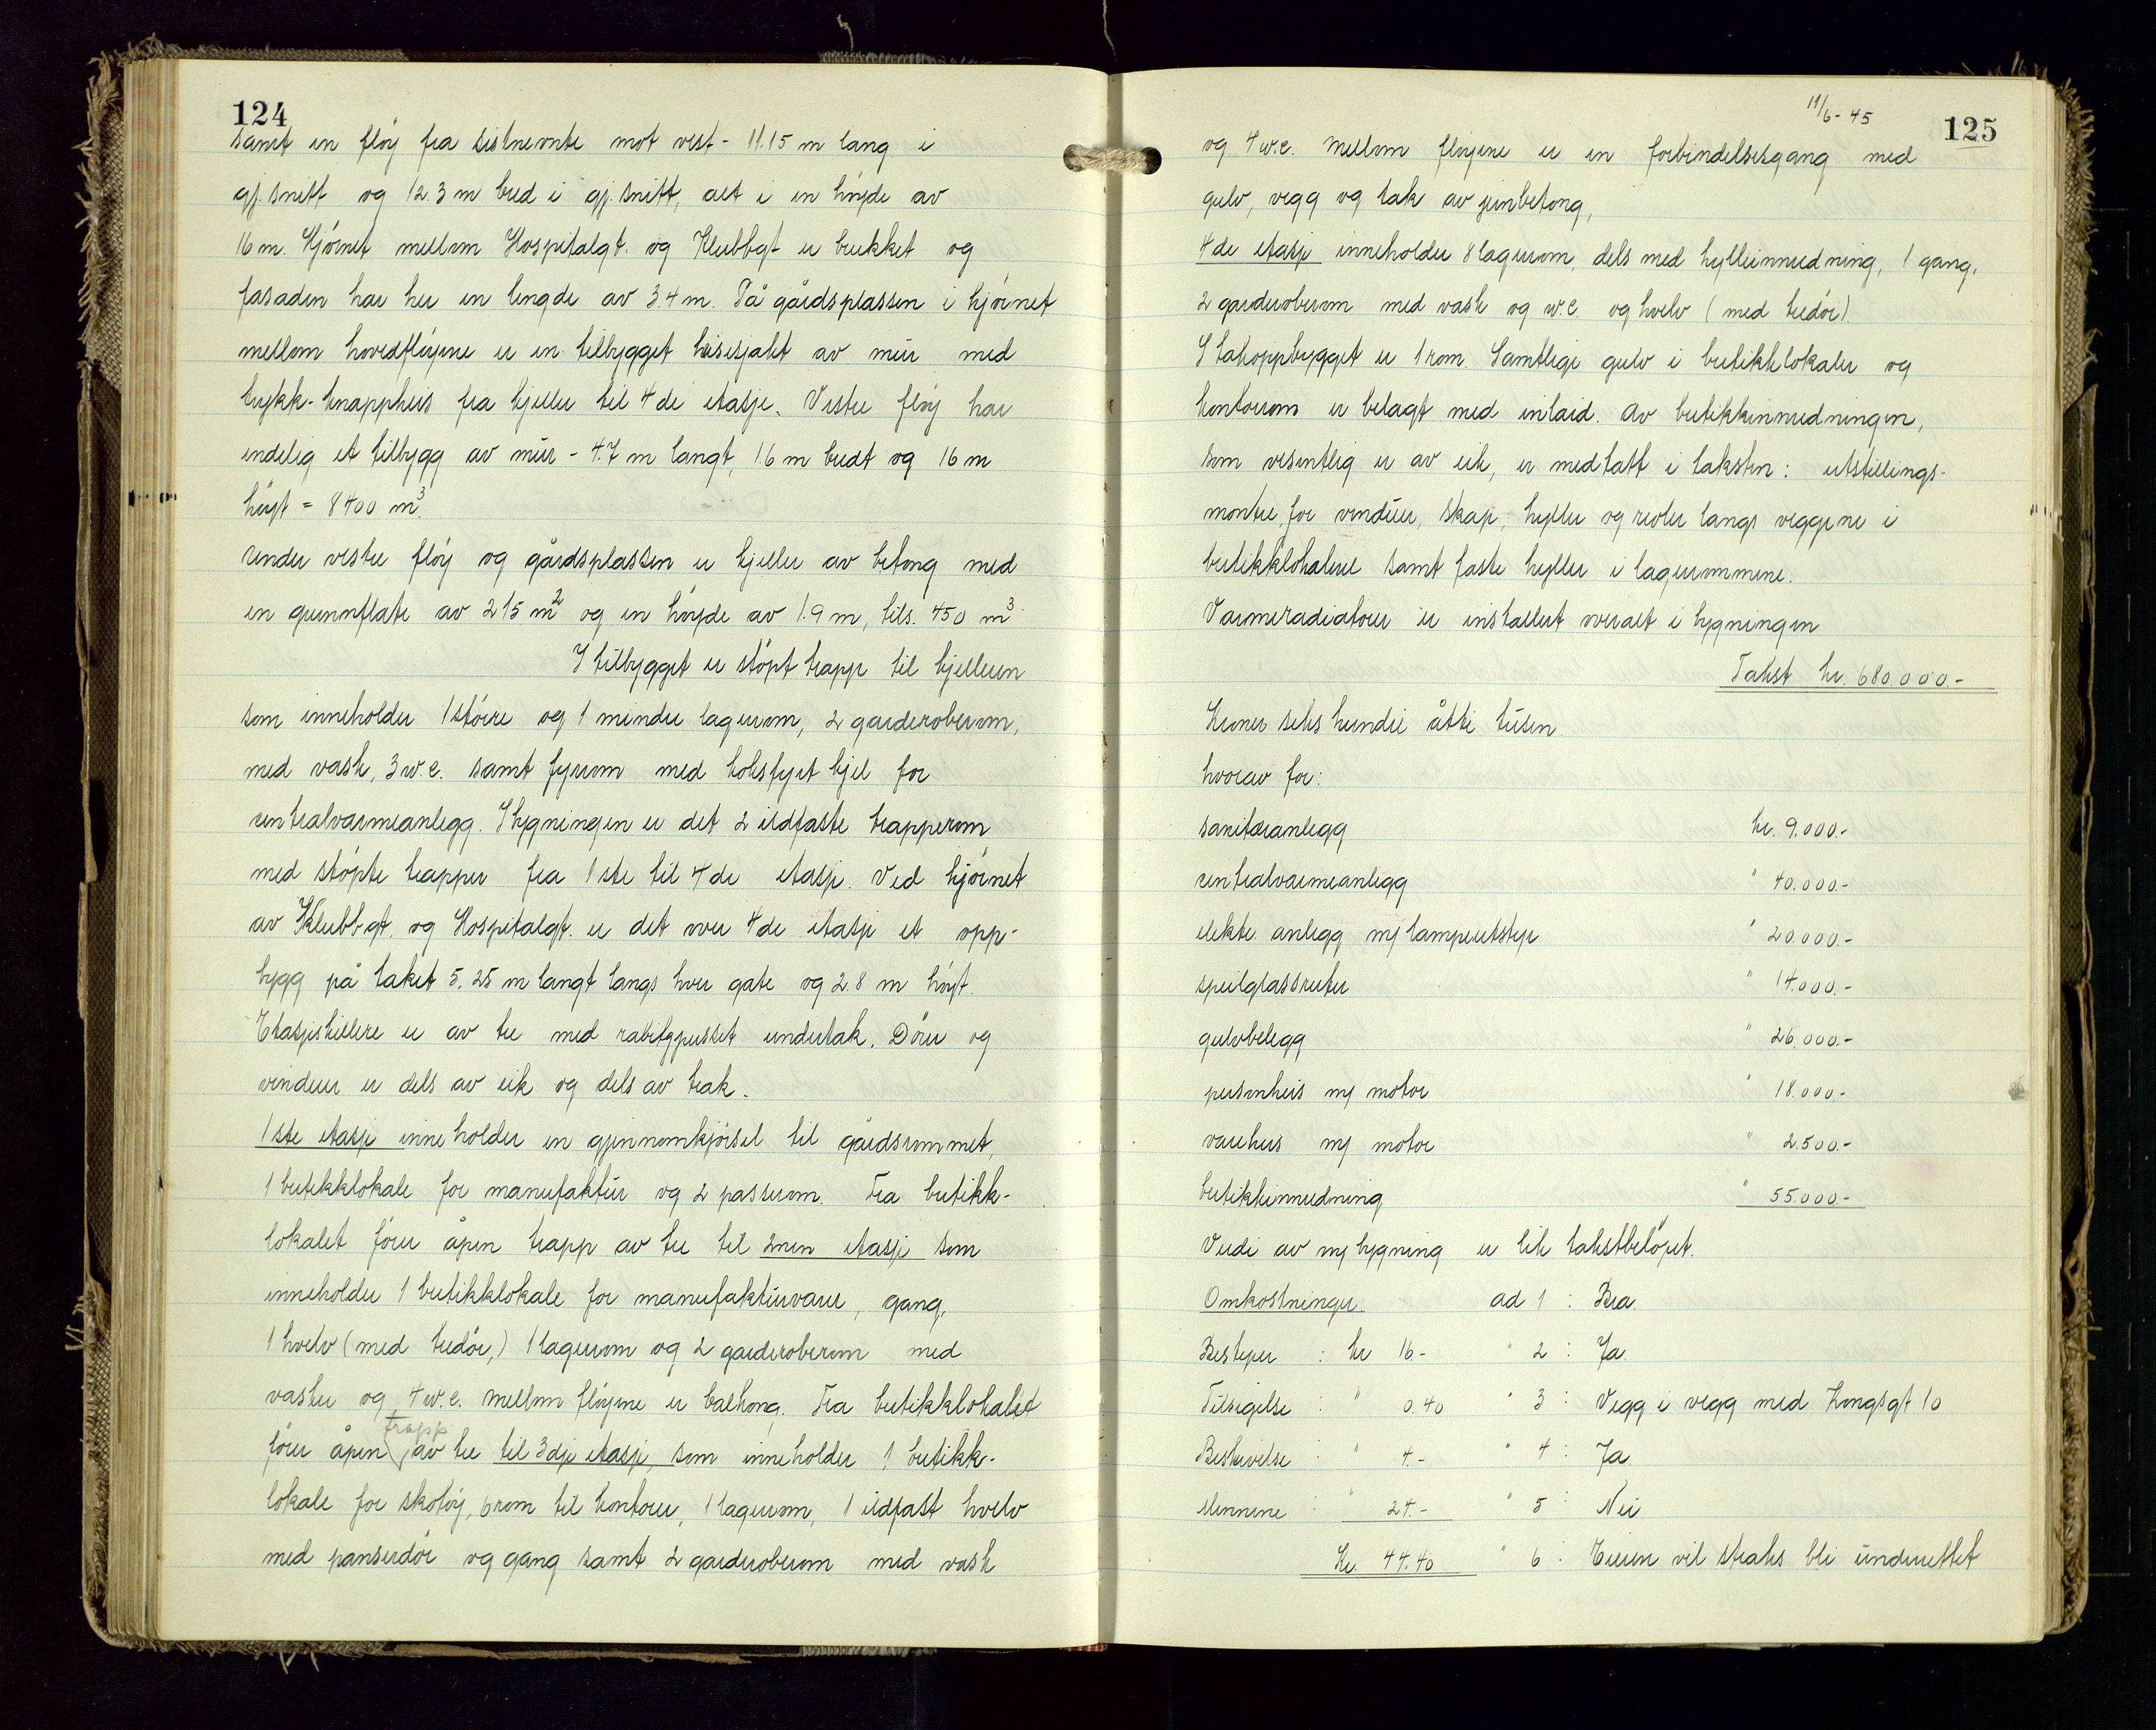 124
samt en fløy fra sistnevnte mot vest - 11.15 m lang i
gj. snitt og 12.3 m bred i gj. snitt, alt i en høyde av
16 m. Hjørnet mellom Hospitalgt. og Klubbgt er brukket og
fasaden har her en lengde av 3.4 m. På gårdsplassen i hjørnet
mellom hovedfløyene er en tilbygget heisesjakt av mur med
trykk-knappheis fra kjeller til 4de etasje. Vestre fløy har
endelig et tilbygg av mur - 4.7 m langt, 1.6 m bredt og 16 m
høyt = 8400 m³.
Under vestre fløy og gårdsplassen er kjeller av betong med
en grunnflate av 215 m² og en høyde av 1.9 m, tils. 450 m³
I tilbygget er støpt trapp til kjelleren
som inneholder 1 større og 1 mindre lagerrom, 2 garderoberom,
med vask, 3 w.c. samt fyrrom med koksfyrt kjel for
sentralvarmeanlegg. I bygningen er det 2 ildfaste trapperom
med støpte trapper fra 1ste til 4de etasje. Ved hjørnet
av Klubbgt. og Hospitalgt. er det over 4de etasje et opp-
bygg på taket 5.25 m langt langs hver gate og 2.8 m høyt.
Etasjeskillere er av tre med rabitzpusset undertak. Dører og
vinduer er dels av eik og dels av teak.
1ste etasje inneholder en gjennomkjørsel til gårdsrommet,
1 butikklokale for manufaktur og 2 passrom. Fra butikk-
lokalet fører åpen trapp av tre til 2nen etasje som
inneholder 1 butikklokale for manufakturvarer, gang,
1 hvelv (med tredør,) 1 lagerrom og 2 garderoberom med
vasker og 4 w.c. Mellom fløyene er balkong. Fra butikklokalet
trapp
fører åpen av tre til 3dje etasje, som inneholder 1 butikk-
lokale for skotøy, 6 rom til kontorer, 1 lagerrom, 1 ildfast hvelv
med panserdør og gang samt 2 garderoberom med vask
11/6-45
125
og 4 w.c. Mellom fløyene er en forbindelsesgang med
gulv, vegg og tak av jernbetong,
4de etasje inneholder 8 lagerrom, dels med hylleinnredning, 1 gang,
2 garderoberom med vask og w.c. og hvelv (med tredør).
I takoppbygget er 1 rom. Samtlige gulv i butikklokaler og
kontorrom er belagt med inlaid. Av butikkinnredningen,
som vesentlig er av eik, er medtatt i taksten: utstillings-
montre for vinduer, skap, hyller og reoler langs veggene i
butikklokalene samt faste hyller i lagerrommene.
Varmeradiatorer er installert overalt i bygningen
Takst kr. 680.000.-
Kroner seks hundre åtti tusen
hvorav for:
sanitæranlegg kr. 9.000.-
sentralvarmeanlegg " 40.000.-
elektr. anlegg m/ lampeutstyr " 20.000.-
speilglassruter " 14.000.-
gulvbelegg " 26.000.-
personheis m/ motor " 18.000.-
vareheis m/ motor " 2.500.-
butikkinnredning " 55.000.-
Verdi av ny bygning er lik takstbeløpet.
Omkostninger: ad 1 : Bra.
Besteper : kr 16.- " 2 : Ja.
Tilsigelse : " 0.40 " 3 : Vegg i vegg med Kongsgt 10
Beskrivelse : " 4.- " 4 : Ja
Mennene : " 24.- " 5 : Nei
Kr. 44.40 " 6 : Eieren vil straks bli underrettet